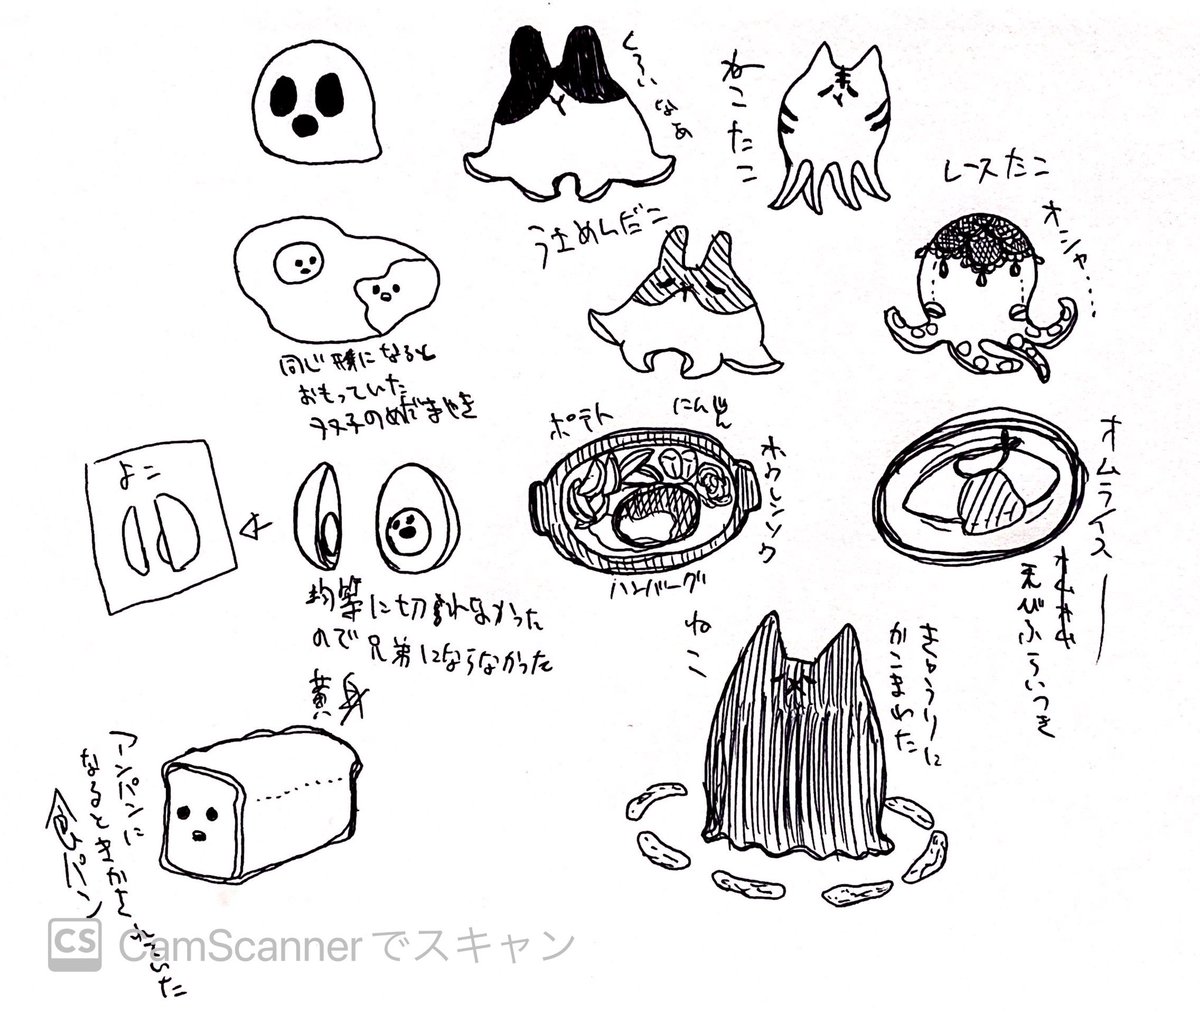 くろいなあ
ねこたこ
レースたこ
うさめんだこ
オシャ・・・・
同じ形になると
おもっていた
双子のめだまやき
ポテト
にんじん
ホウレンソウ
ハンバーグ
オムライス
えびふらいつき
よこ
均等に切れなかった
ので兄弟にならなかった
黄身
ねこ
きゅうりに
かこまれた
アンパンに
なるときかされていた
食パン
CS CamScannerでスキャン